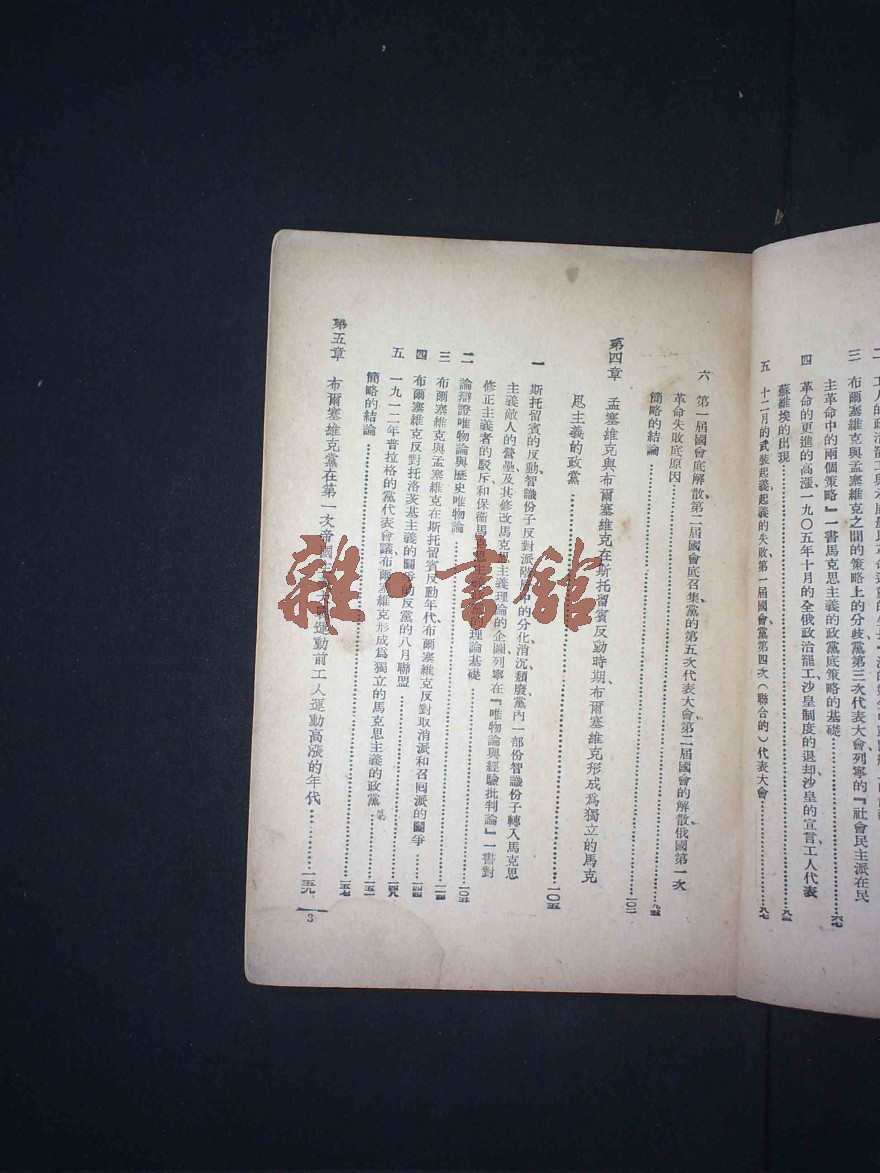 三 布爾塞維克與孟塞維克之間的策略上的分歧、黨第三次代表大會、列寧的『社會民主派在民
主革命中的兩個策略』一書、馬克思主義的政黨底策略的基礎……六七
四 革命的更進的高漲、一九〇五年十月的全俄政治罷工、沙皇制度的退却、沙皇的宣言、工人代表
蘇維埃的出現……
五 十二月的武裝起義、起義的失敗、第一屆國會、黨第四次（聯合的）代表大會……八七
六 第一屆國會底解散、第二屆國會底召集、黨的第五次代表大會、第二屆國會的解散、俄國第一次
革命失敗底原因……九五
簡略的結論……一〇二
第四章 孟塞維克與布爾塞維克在斯托留賓反動時期、布爾塞維克形成爲獨立的馬克
思主義的政黨……一〇五
一 斯托留賓的反動、智識份子反對派階層中的分化、消沉、頹廢、黨內一部份智識份子轉入馬克思
主義敵人的營壘及其修改馬克思主義理論的企圖、列寧在『唯物論與經驗批判論』一書對
修正主義者的駁斥和保衞馬克思主義的理論基礎……一〇五
二 論辯證唯物論與歷史唯物論……
三 布爾塞維克與孟塞維克在斯托留賓反動年代、布爾塞維克反對取消派和召囘派的鬭爭……
四 布爾塞維克反對托洛茨基主義的鬭爭、反黨的八月聯盟……
五 一九一二年普拉格的黨代表會議、布爾塞維克形成爲獨立的馬克思主義的政黨……一五一
簡略的結論……一五七
第五章 布爾塞維克黨在第一次帝國主義運動前工人運動高漲的年代……一五九
3
雜·書館